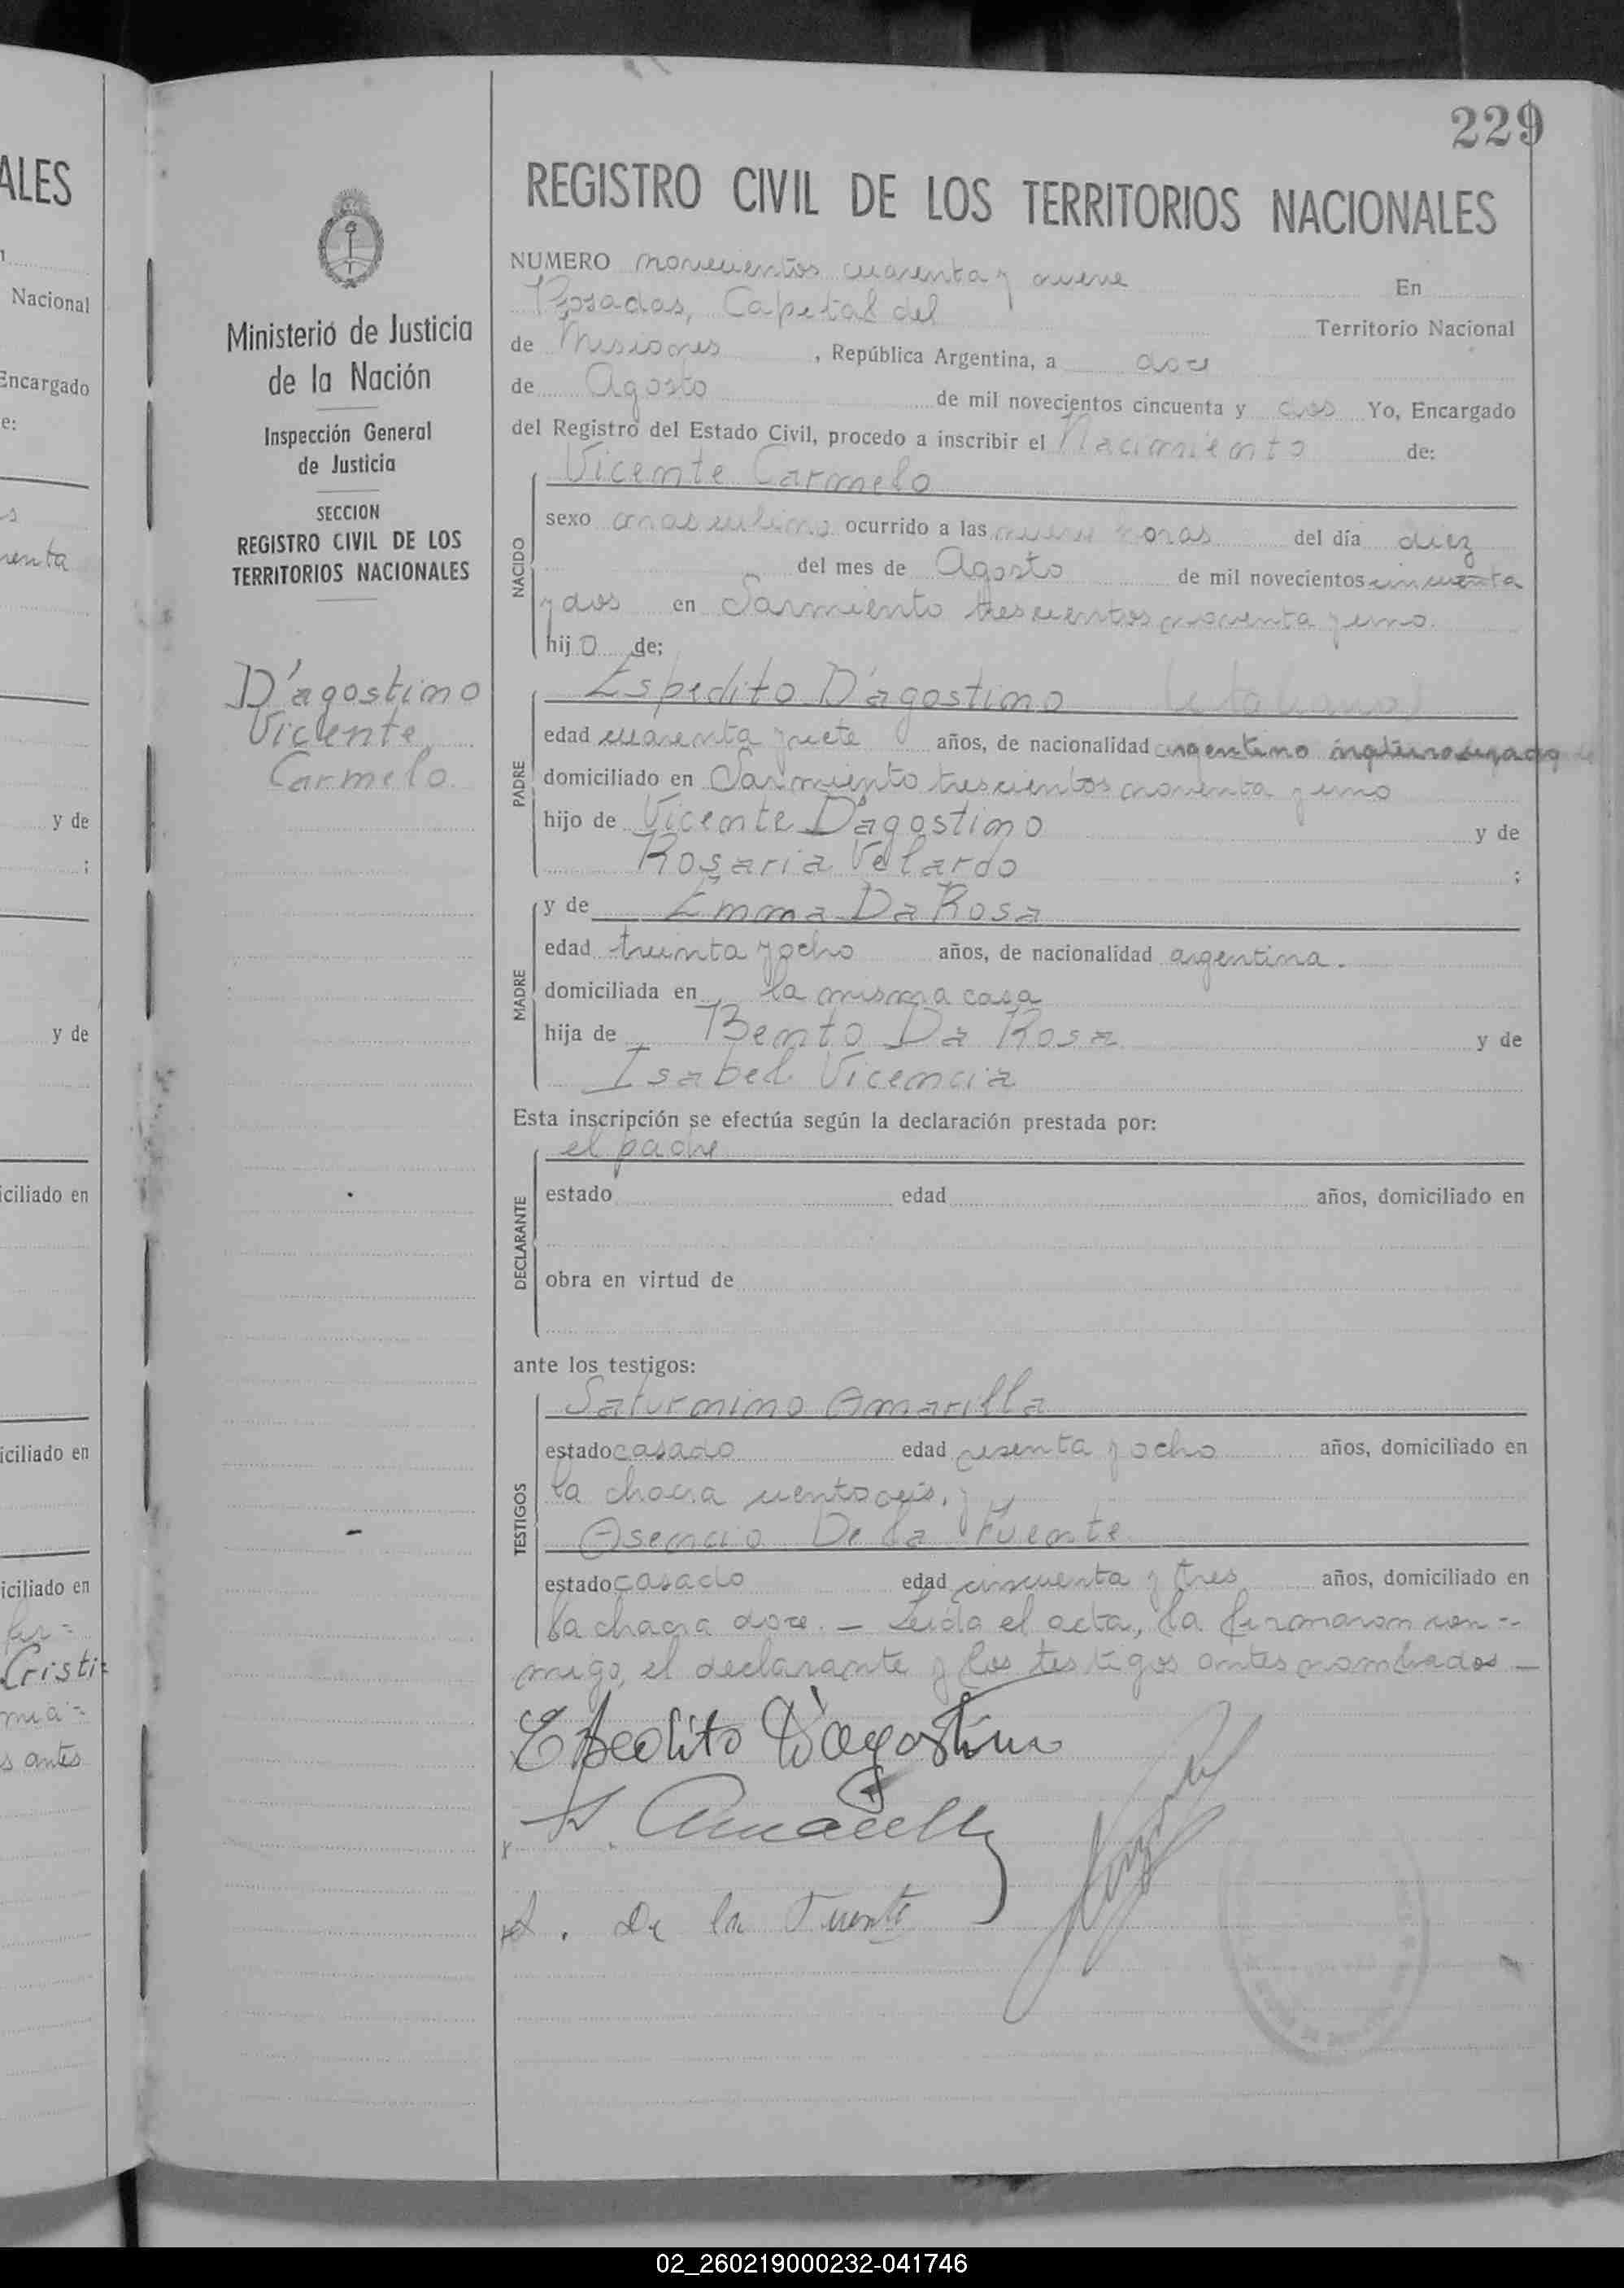 229
ALES
Nacional
Encargado
e:
enta
y de
;
y de
iciliado en
iciliado en
iciliado en
Cristi=
mia=
s antes
Ministerio de Justicia
de la Nación
Inspección General
de Justicia
SECCION
REGISTRO CIVIL DE LOS
TERRITORIOS NACIONALES
D'agostino
Vicente
Carmelo.
REGISTRO CIVIL DE LOS TERRITORIOS NACIONALES
NUMERO novecientos cuarenta y nueve En
Posadas, Capital del Territorio Nacional
de Misiones, República Argentina, a doce
de Agosto de mil novecientos cincuenta y dos Yo, Encargado
del Registro del Estado Civil, procedo a inscribir el Nacimiento de:
Vicente Carmelo
NACIDO
sexo masculino ocurrido a las nueve horas del día diez
del mes de Agosto de mil novecientos cincuenta
y dos en Sarmiento trescientos noventa y uno.
hijo de:
Espedito D'agostino (italiano)
PADRE
edad cuarenta y siete años, de nacionalidad argentino naturalizado
domiciliado en Sarmiento trescientos noventa y uno
hijo de Vicente D'agostino y de
Rosaria Velardo ;
y de Emma Da Rosa
MADRE
edad treinta y ocho años, de nacionalidad argentina.
domiciliada en la misma casa
hija de Bento Da Rosa y de
Isabel Vicencia
Esta inscripción se efectúa según la declaración prestada por:
el padre
DECLARANTE
estado edad años, domiciliado en
obra en virtud de
ante los testigos:
Saturnino Amarilla
TESTIGOS
estado casado edad sesenta y ocho años, domiciliado en
la chacra ciento seis, y
Asencio De la Fuente
estado casado edad cincuenta y tres años, domiciliado en
la chacra doce. — Leída el acta, la firmaron con=
migo, el declarante y los testigos antes nombrados —
Espedito D'agostino
S. Amarilla
A. De la Fuente
02_260219000232-041746